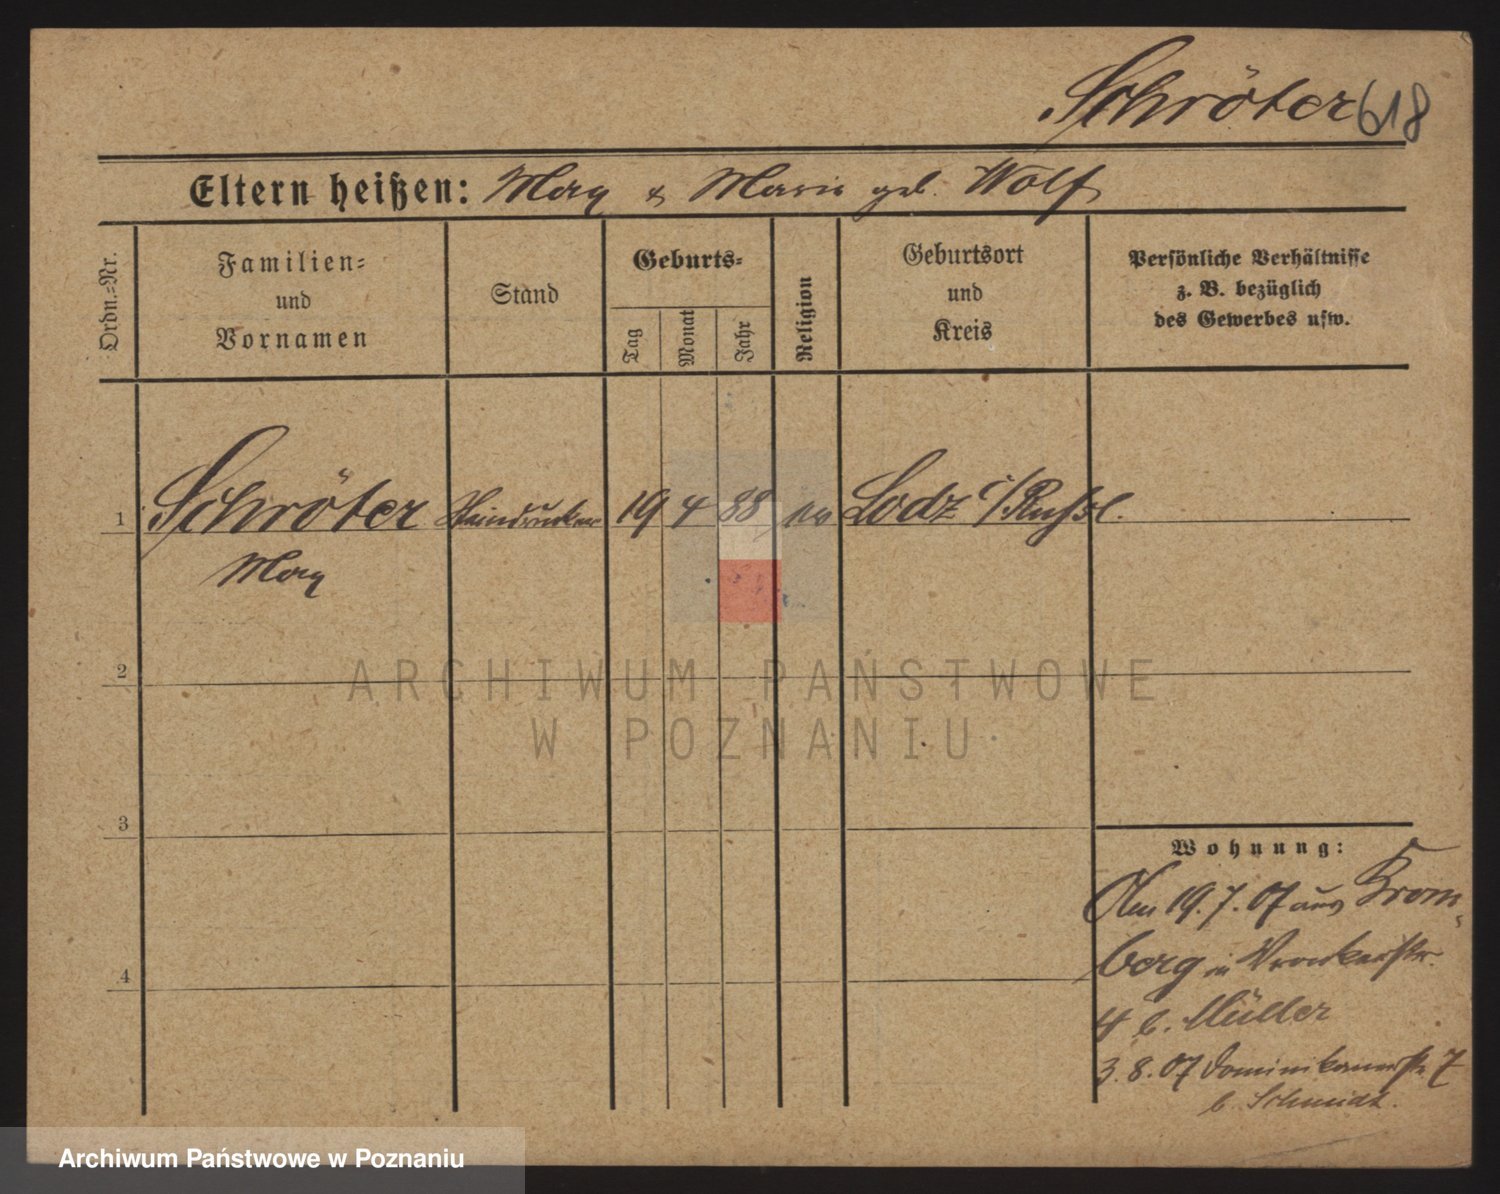 Schröter 618
Eltern heißen: Max & Marie geb. Wolf
Ordn.=Nr.
Familien=
und
Vornamen
Stand
Geburts=
Tag
Monat
Jahr
Religion
Geburtsort
und
Kreis
Persönliche Verhältnisse
z. B. bezüglich
des Gewerbes usw.
1 Schröter Steindrucker 19 4 88 ev Lodz i/Russl.
Max
2
3
4
ARCHIWUM PAŃSTWOWE
W POZNANIU
Wohnung:
Am 19.7.07 aus Brom-
berg in Wronkerstr.
4 b. Müller
3.8.07 Dominikanerstr. 7
b. Schmidt.
Archiwum Państwowe w Poznaniu